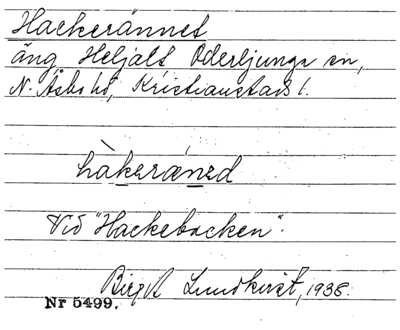 Hackerännet
äng, Heljalt Oderljunga sn,
N. Åsbo hd, Kristianstads l.
hàkerǽned
Vid "Hackebacken".
Birgit Lundkvist, 1938.
Nr 5499.